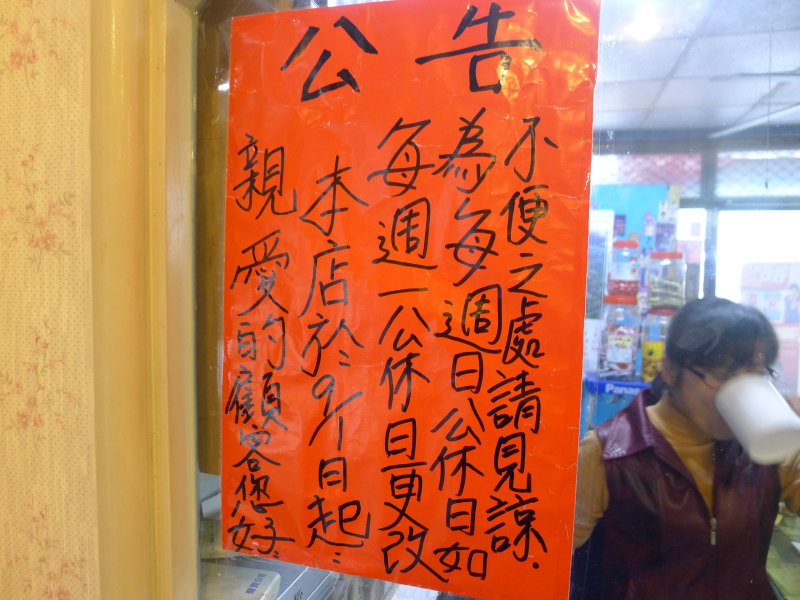 公告
親愛的顧客您好:
本店於9/1日起:
每週一公休日更改
為每週日公休日如
不便之處請見諒.
Panas